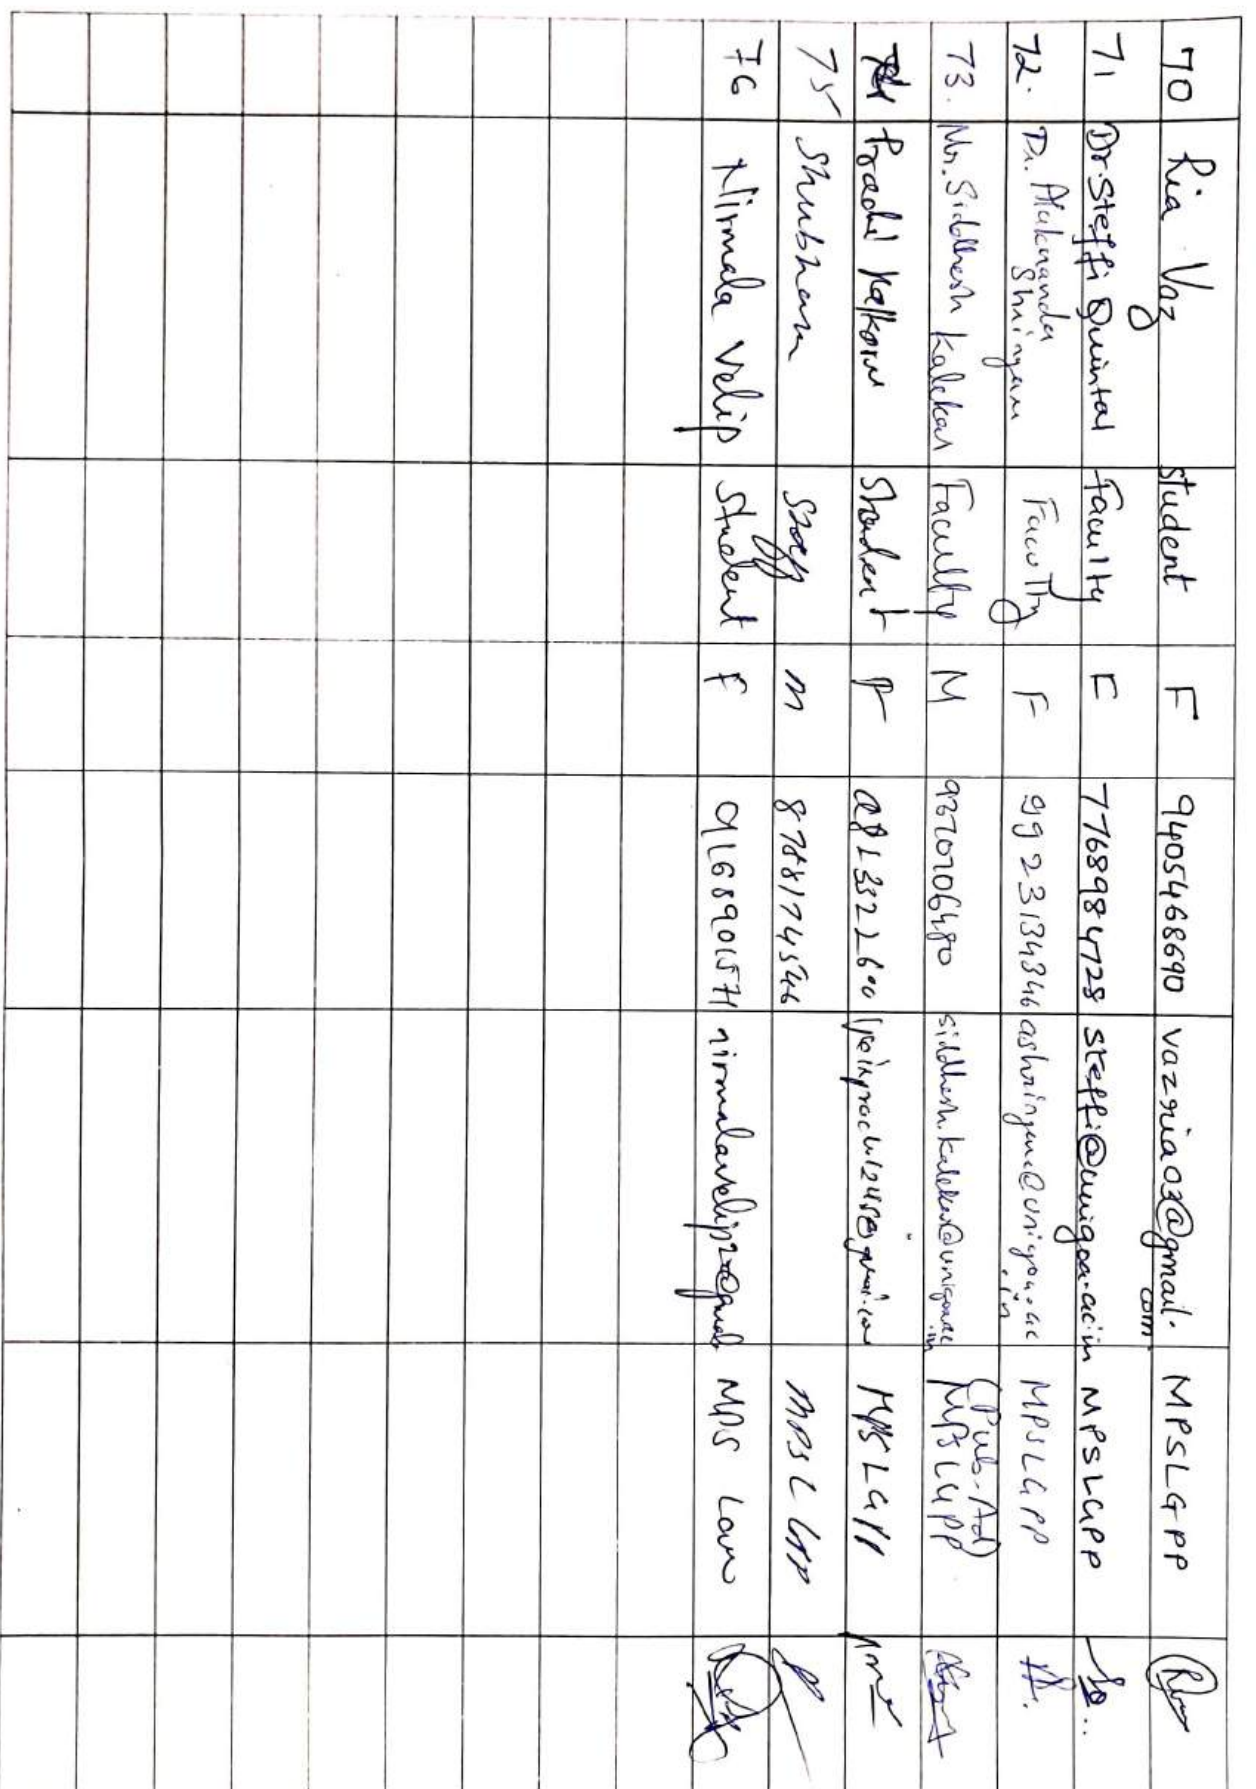 70 Ria Vaz student F 9405468690 vazria03@gmail.com MPSLGPP
71 Dr. Steffi Quintal Faculty F 7768984728 steffi@unigoa.ac.in MPSLGPP
72. Dr. Alaknanda Shringare Faculty F 9923134346 ashringare@unigoa.ac.in MPSLGPP
73. Mr. Siddhesh Kalekar Faculty M siddhesh.kalekar@unigoa.ac.in (Pub-Ad) MPSLGPP
74 Prachi Student F MPSLGPP
75 Shubham Staff M 8788174546 MPSLGPP
76 Nirmala Velip Student F 9168901571 MPS Law